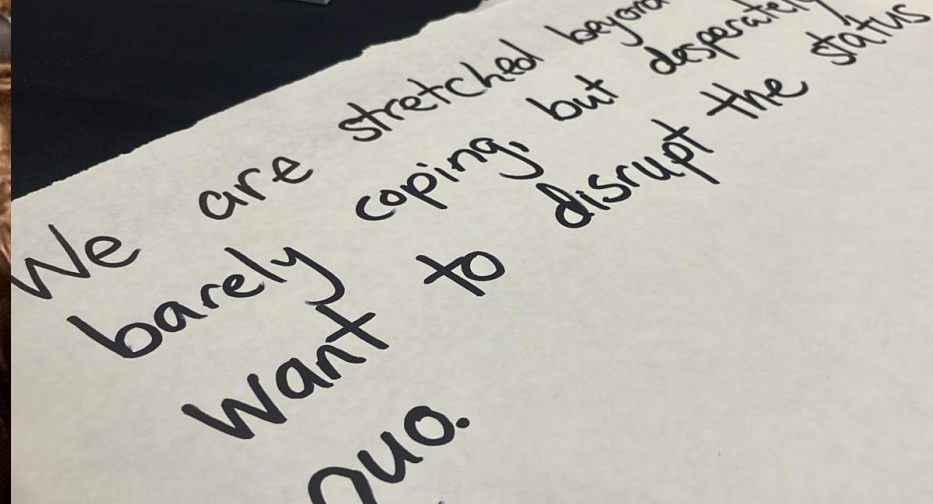 We are stretched beyond
barely coping, but desperately
want to disrupt the status
Quo.